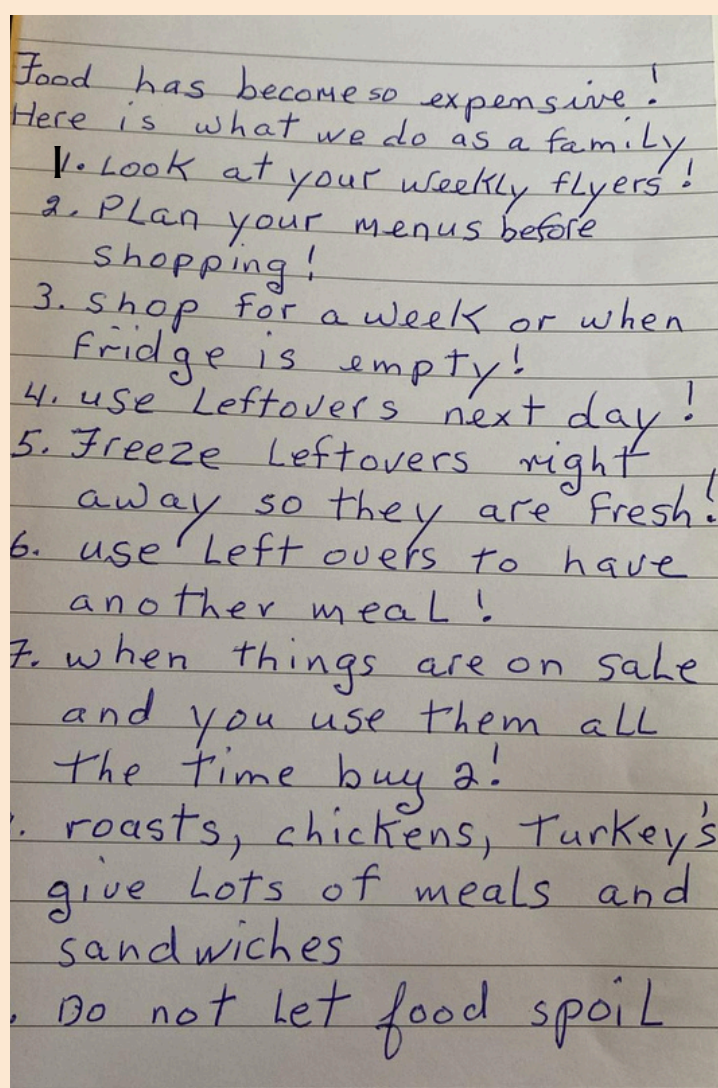 Food has become so expensive!
Here is what we do as a family
1. Look at your weekly flyers!
2. Plan your menus before
shopping!
3. shop for a week or when
fridge is empty!
4. use Leftovers next day!
5. Freeze Leftovers right
away so they are fresh!
6. use Left overs to have
another meal!
7. when things are on sale
and you use them all
the time buy 2!
. roasts, chickens, Turkey's
give Lots of meals and
sandwiches
. Do not Let food spoil